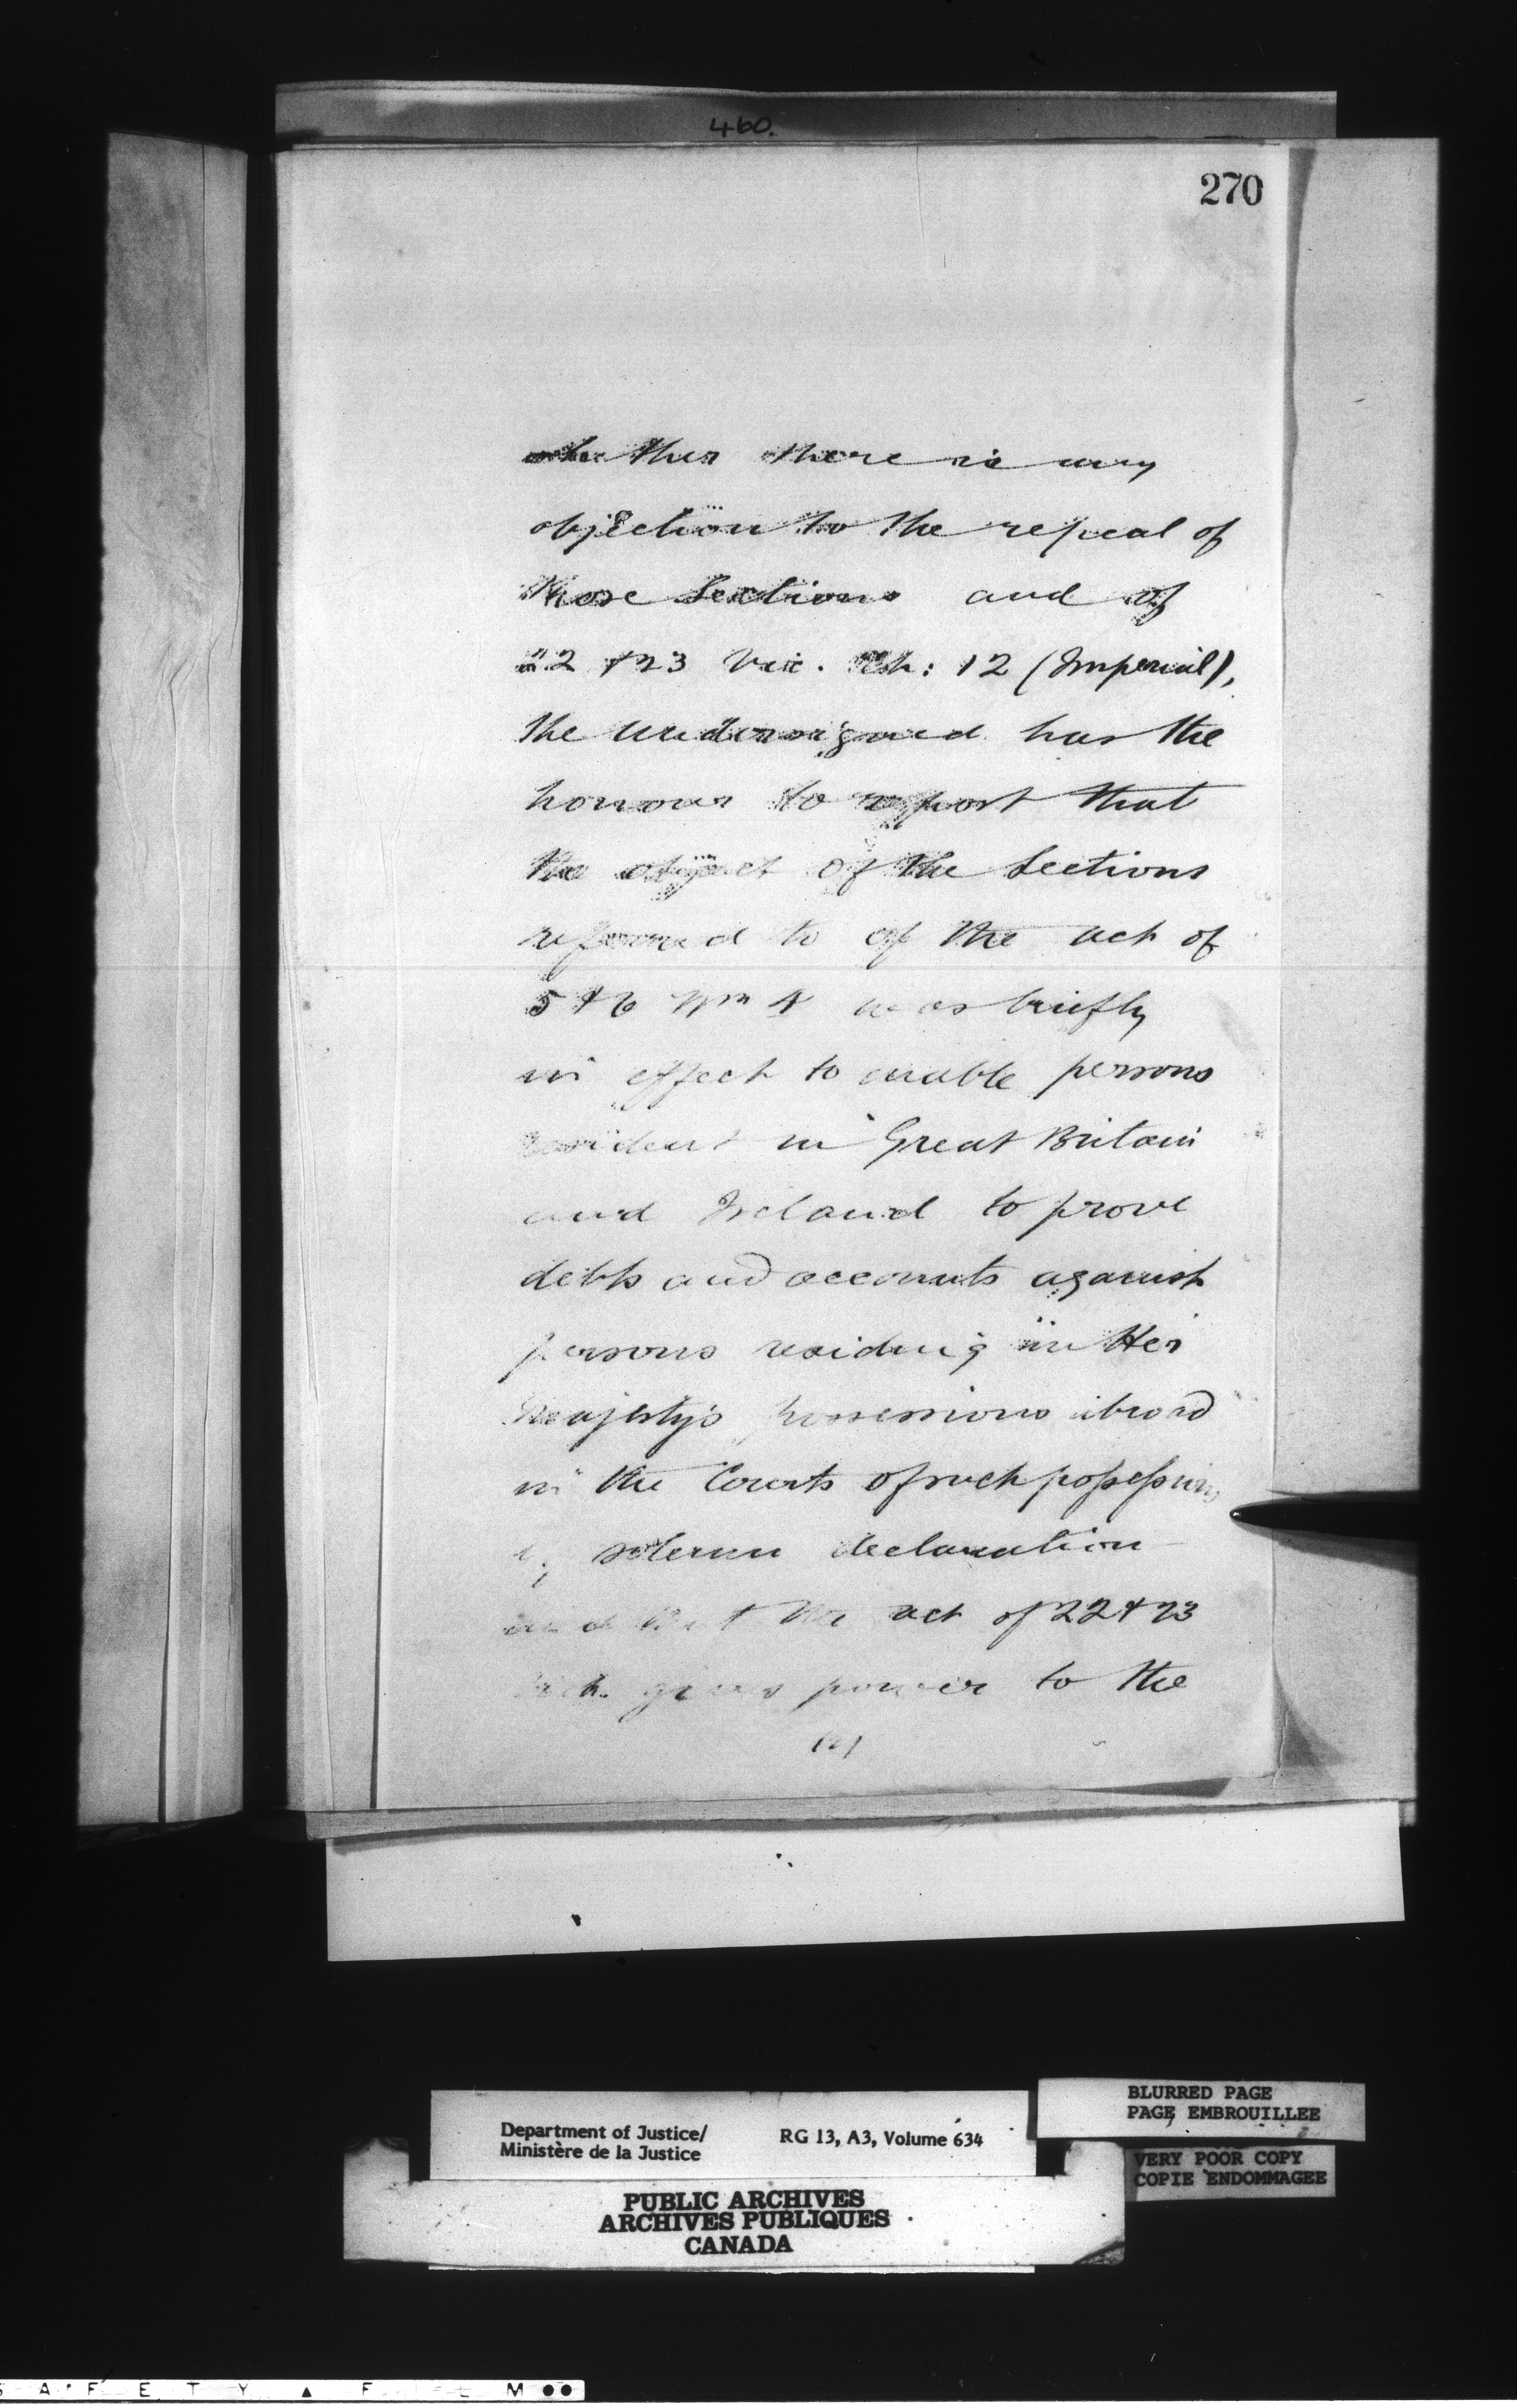 460.
270
whether there is any
objection to the repeal of
those Sections and of
22 & 23 Vic. Ch: 12 (Imperial),
the undersigned has the
honour to report that
the object of the Sections
referred to of the act of
5 & 6 Wm 4 was briefly
in effect to enable persons
resident in Great Britain
and Ireland to prove
debts and accounts against
persons residing in Her
Majesty's possessions abroad
in the Courts of such possessions
by solemn declaration
and that the act of 22 & 23
Vich. gives power to the
(2)
Department of Justice/
Ministère de la Justice
RG 13, A3, Volume 634
BLURRED PAGE
PAGE EMBROUILLEE
VERY POOR COPY
COPIE ENDOMMAGEE
PUBLIC ARCHIVES
ARCHIVES PUBLIQUES
CANADA
S A F E T Y ▲ F L M ●●